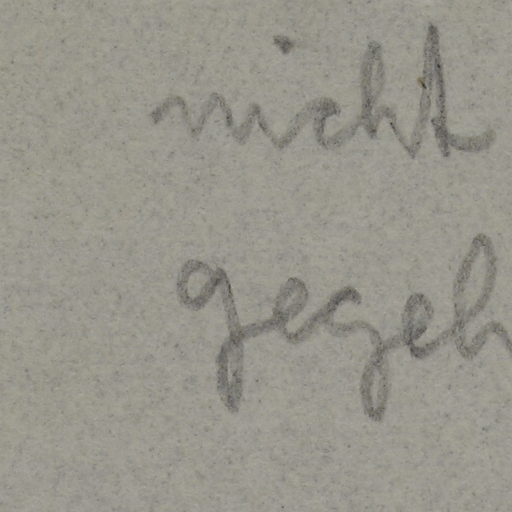 nicht
gegeb